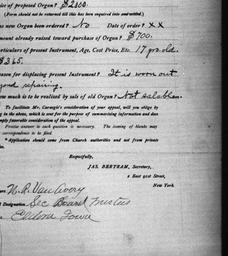 ice of proposed Organ? $2100.
(Form should not be returned till this has been inquired into and settled.)
as new Organ been ordered? No Date of order? x x
mount already raised toward purchase of Organ? $700.
articulars of present Instrument, Age, Cost Price, Etc. 17 yrs old.
$365.
eason for displacing present Instrument? It is worn out
repairing.
ow much is to be realized by sale of old Organ? Not salable.
To facilitate Mr. Carnegie's consideration of your appeal, will you oblige by
ing in the above, which is sent for the purpose of summarizing information and thus
mply favorable consideration of the appeal.
Precise answer to each question is necessary. The coming of friends may
correspondence to be filed.
Application should come from Church authorities and not from private
Respectfully,
JAS. BERTRAM, Secretary,
2 East 91st Street,
New York.
Designation Sec Board Trustees
Eldora Iowa